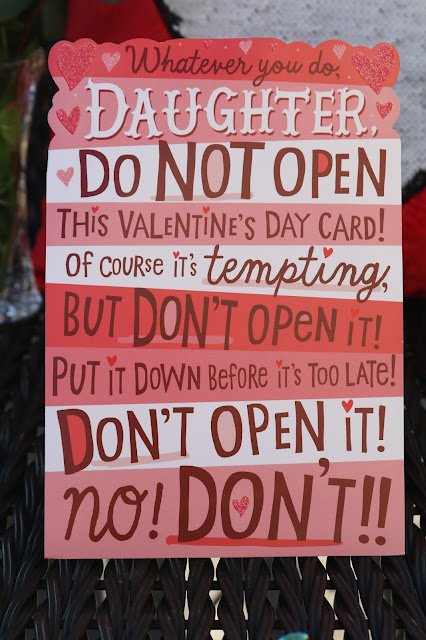 Whatever you do,
DAUGHTER,
DO NOT OPEN
THiS VALENTiNE'S DAY CARD!
OF COURSE iT'S tempting,
BUT DON'T OPEN iT!
PUT iT DOWN BEFORE iT'S TOO LATE!
DON'T OPEN iT!
no! DON'T!!